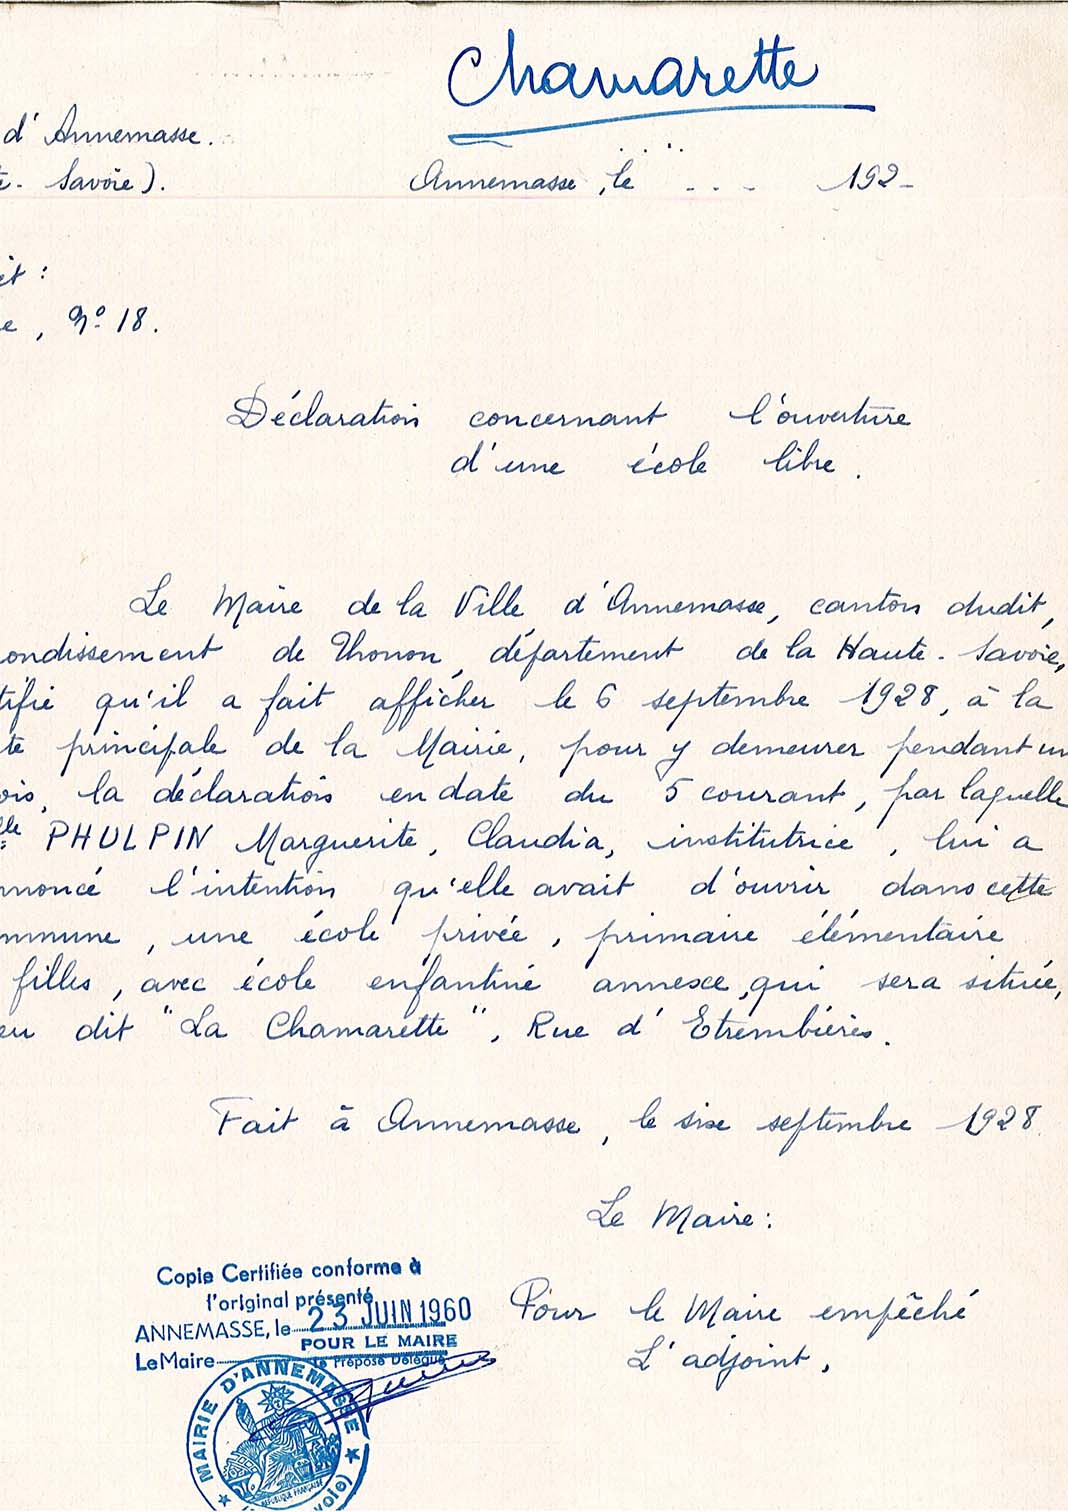 Chamarette
d'Annemasse.
Savoie).
Annemasse, le - - - 192-
:
, N° 18.
Déclaration concernant l'ouverture
d'une école libre.
Le Maire de la Ville d'Annemasse, canton dudit,
ondissement de Thonon, département de la Haute-Savoie,
tifie qu'il a fait afficher le 6 septembre 1928, à la
te principale de la Mairie, pour y demeurer pendant un
ois, la déclaration en date du 5 courant, par laquelle
lle PHULPIN Marguerite, Claudia, institutrice, lui a
nnoncé l'intention qu'elle avait d'ouvrir dans cette
mmune, une école privée, primaire élémentaire
filles, avec école enfantine annexe, qui sera située,
eu dit "La Chamarette", Rue d'Etrembières.
Fait à Annemasse, le six septembre 1928.
Le Maire:
Copie Certifiée conforme à
l'original présenté
ANNEMASSE, le 23 JUIN 1960
POUR LE MAIRE
Le Maire
Le Préposé Délégué
Pour le Maire empêché
L'adjoint,
MAIRIE D'ANNEMASSE
RÉPUBLIQUE FRANÇAISE